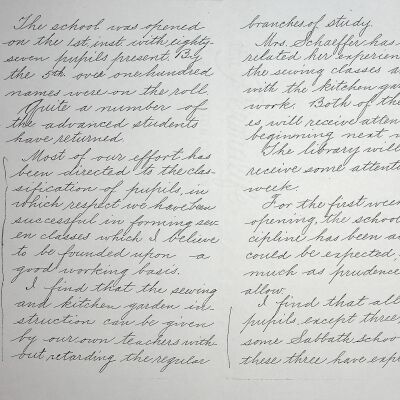 The school was opened
on the 1st inst with eighty-
seven pupils present. By
the 5th over one hundred
names were on the roll.
Quite a number of
the advanced students
have returned.
Most of our effort has
been directed to the clas-
sification of pupils, in
which respect we have been
successful in forming sev-
en classes which I believe
to be founded upon a
good working basis.
I find that the sewing
and kitchen garden in-
struction can be given
by our own teachers with-
out retarding the regular
branches of study.
Mrs. Schaeffer has
related her experien
the sewing classes a
with the kitchen gar
work. Both of th
es will receive atten
beginning next w
The library will
receive some attenti
week.
For the first week
opening, the school
cipline has been a
could be expected,
much as prudence
allow.
I find that all
pupils, except three,
some Sabbath schoo
these three have expr